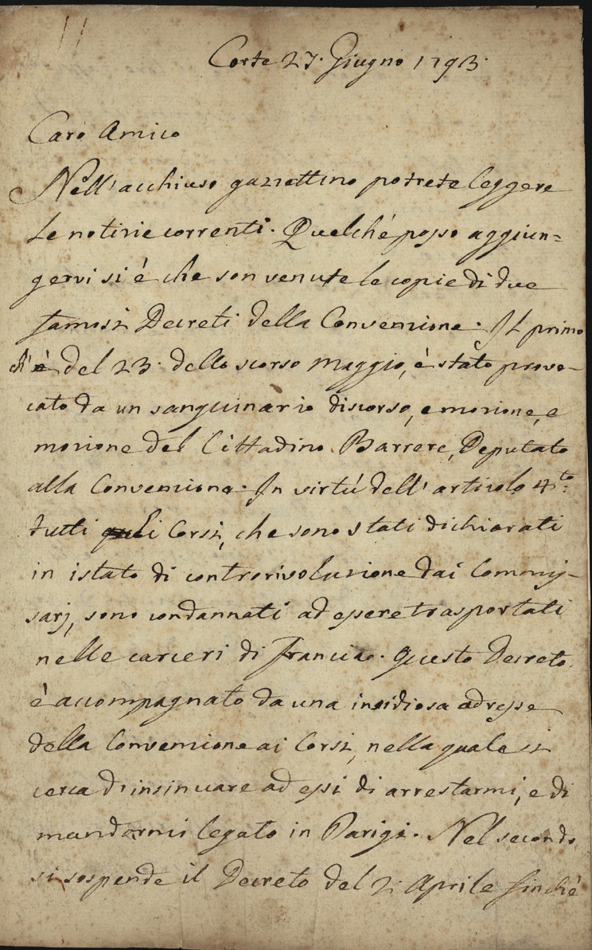 Corte 27. Giugno 1793.
Caro Amico
Nell'acchiuso gazzettino potrete leggere
le notizie correnti. Quelché posso aggiun=
gervi si é che son venute le copie di due
famosi Decreti della Convenzione. Il primo
ch'é del 23. dello scorso Maggio, é stato provo-
cato da un sanguinario discorso, e mozione, e
mozione del Cittadino Barrere, Deputato
alla Convenzione. In virtú dell'articolo 4.to
tutti i Corsi, che sono stati dichiarati
in istato di controrivoluzione dai Commis-
sarj, sono condannati ad essere trasportati
nelle carceri di Francia. Questo Decreto
é accompagnato da una insidiosa adresse
della Convenzione ai Corsi, nella quale si
cerca d'insinuare ad essi di arrestarmi, e di
mandarmi legato in Parigi. Nel secondo
si sospende il Decreto del 2. Aprile finché